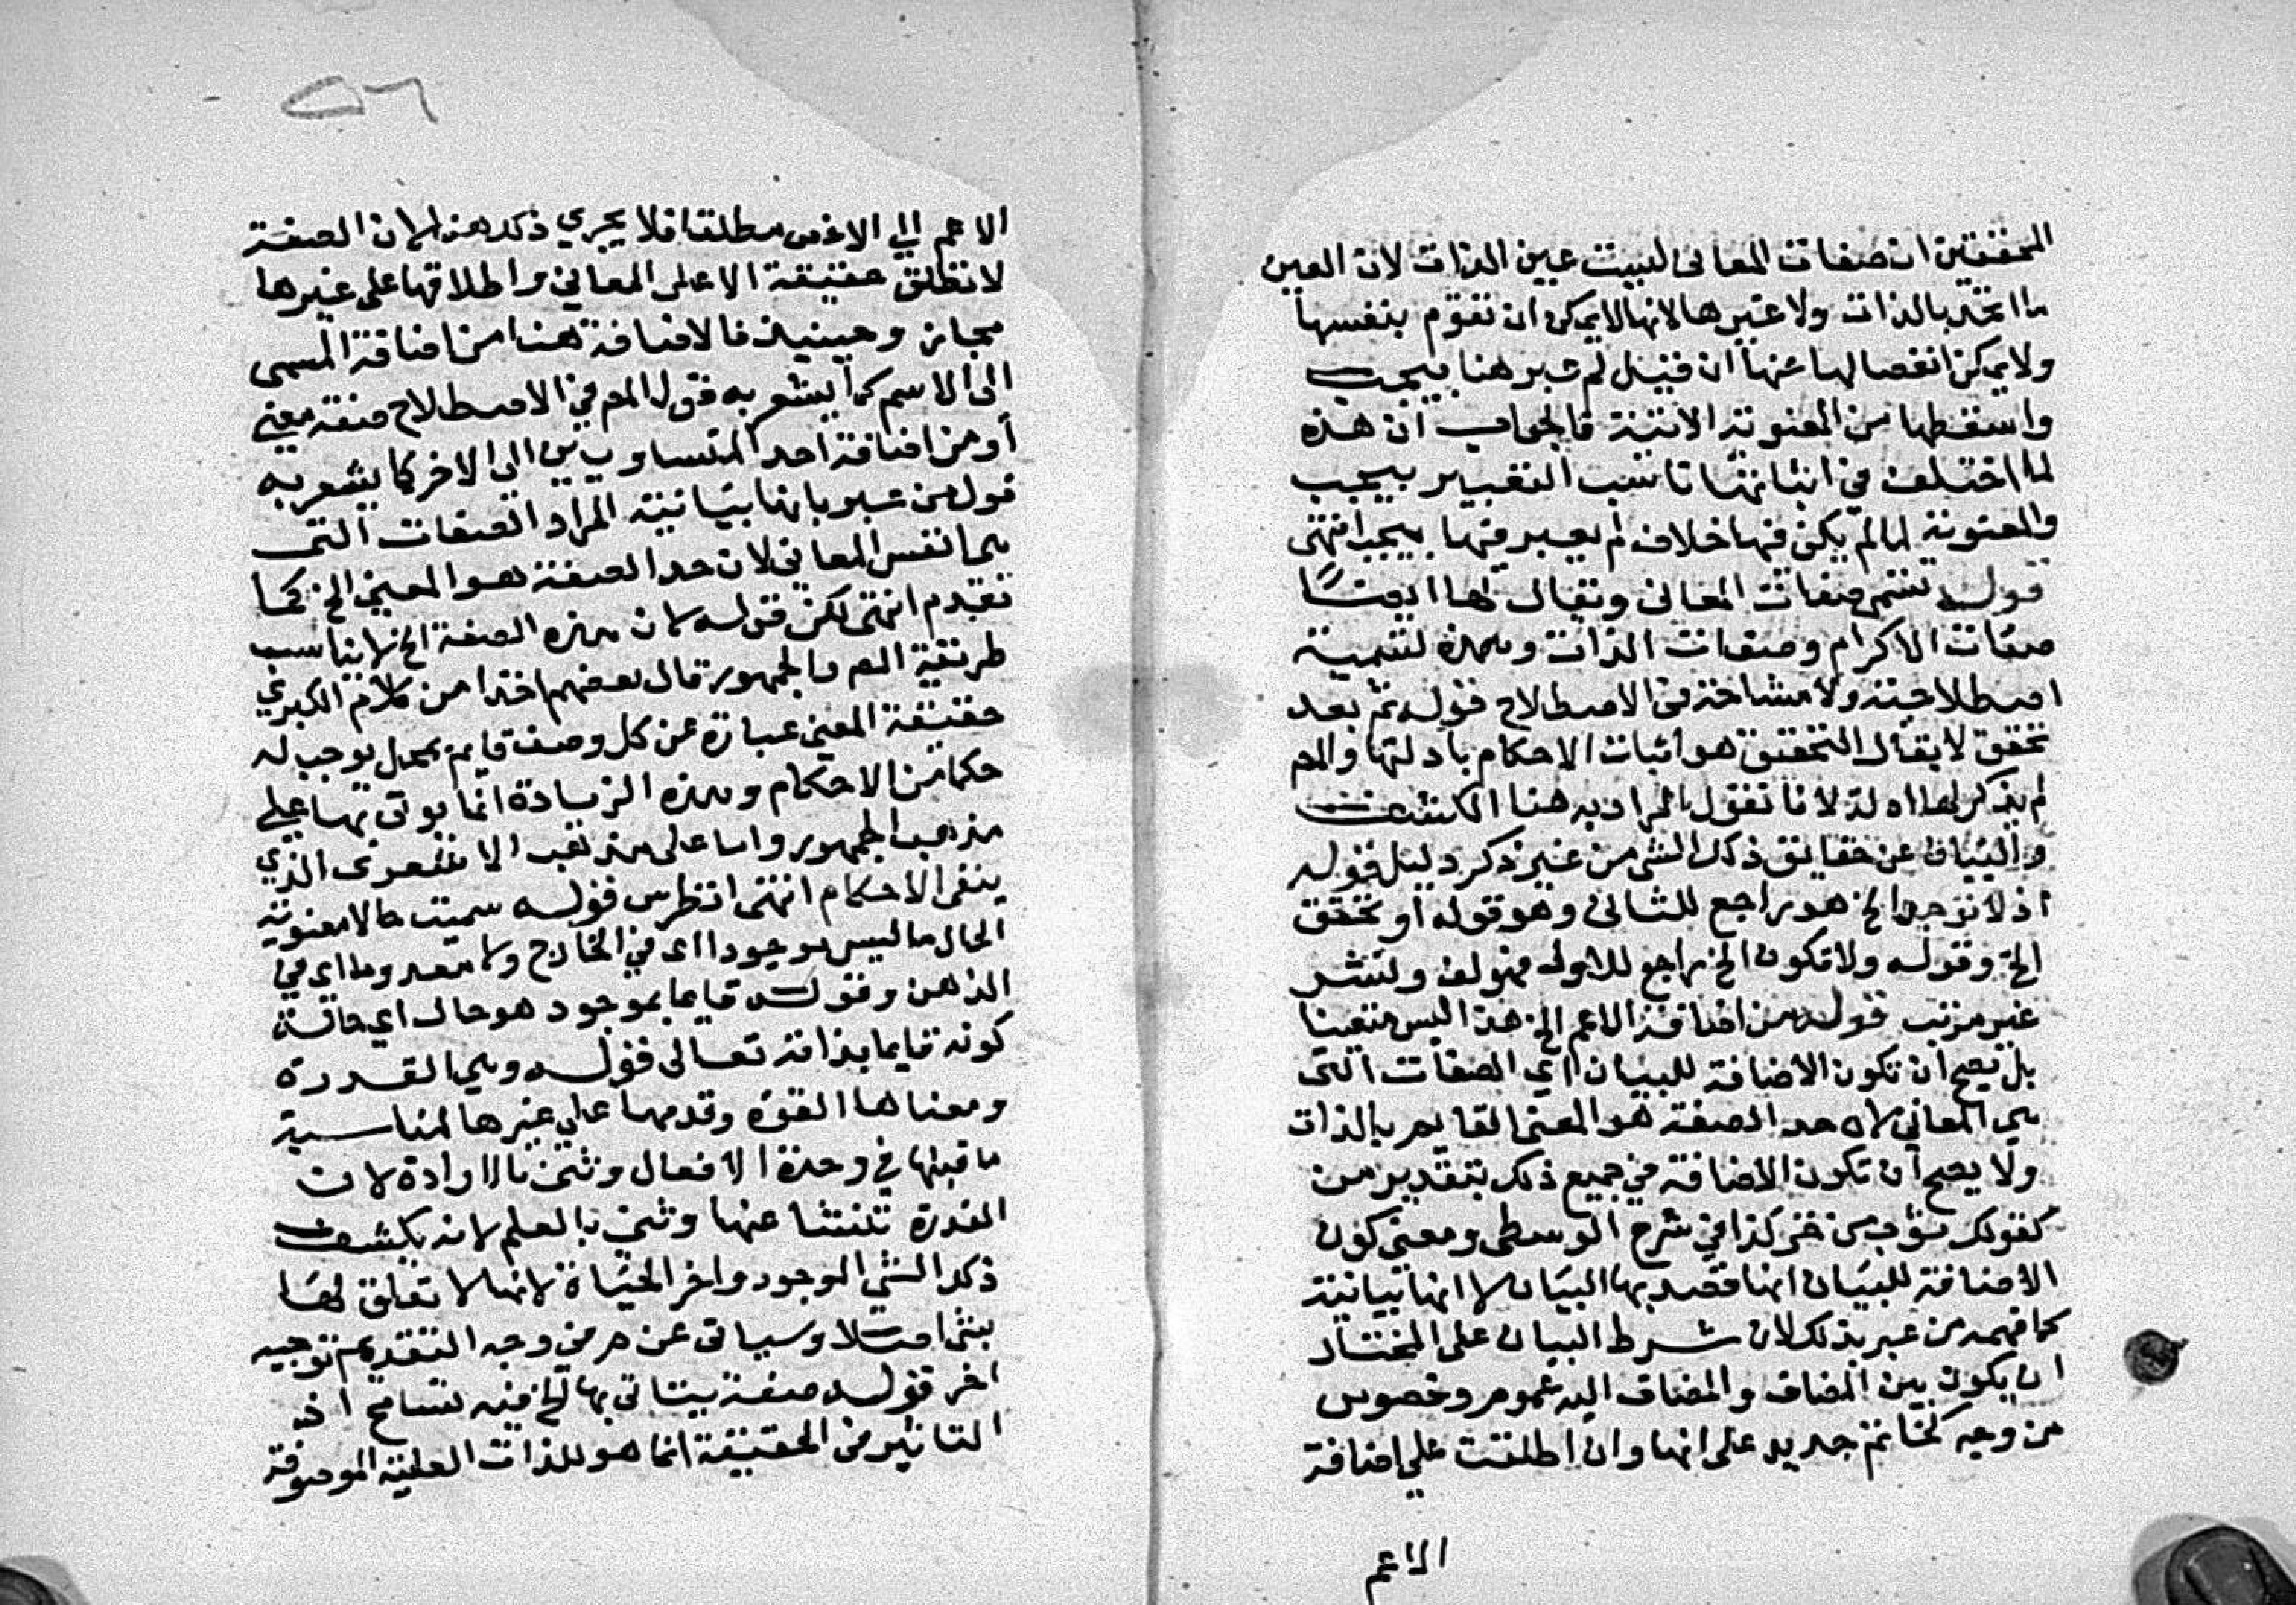 المحققين ان صفات المعاني ليست عين الذات لان العين
ما اتحد بالذات ولا غيرها لانها لا يمكن ان تقوم بنفسها
ولا يمكن انفصالها عنها ان قيل لم عبر هنا بيجب
واسقطها من المعنوية الاتية فالجواب ان هذه
لما اختلف في اثباتها ناسب التعبير بيجب
والمعنوية لما لم يكن فيها خلاف لم يعبر فيها بيجب انتهى
قوله تسمى صفات المعاني ويقال لها ايضا
صفات الاكرام وصفات الذات وهذه تسمية
اصطلاحية ولا مشاحة في الاصطلاح قوله ثم بعد
تحقق لا يقال التحقق هو اثبات الاحكام بادلتها والمص
لم يذكر لها ادلة لانا نقول المراد به هنا الكشف
والبيان عن حقايق ذلك الشي من غير ذكر دليل قوله
اذ لا توجد الخ هو راجع للثاني وهو قوله او تحقق
الخ وقوله ولا تكون الخ راجع للاول فهو لف ونشر
غير مرتب قوله من اضافة الاعم الخ هذا ليس متعينا
بل يصح ان تكون الاضافة للبيان اي الصفات التي
هي المعاني لان حد الصفة هو المعنى القايم بالذات
ولا يصح ان تكون الاضافة في جميع ذلك بتقدير من
كقولك ثوب من خز كذا في شرح الوسطى ومعنى كون
الاضافة للبيان انها قصد بها البيان لا انها بيانية
كما فهمه من عبر بذلك لان شرط البيان على المختار
ان يكون بين المضاف والمضاف اليه عموم وخصوص
من وجه كخاتم حديد على انها وان اطلقت على اضافة
الاعم
٥٦
الاعم الى الاخص مطلقا فلا يجري ذلك هنا لان الصفة
لا تطلق حقيقة الا على المعاني واطلاقها على غيرها
مجاز وحينيذ فالاضافة هنا من اضافة المسمى
الى الاسم كما يشعر به قول المص في الاصطلاح صفة معنى
أو من اضافة احد المتساويين الى الاخر كما يشعر به
قول من عبر بانها بيانية المراد الصفات التي
هي نفس المعاني لان حد الصفة هو المعنى الخ كما
تقدم انتهى لكن قوله لان هذه الصفة الخ لا يناسب
طريقة المص والجمهور قال بعضهم اخذا من كلام الكبرى
حقيقة المعنى عبارة عن كل وصف قايم بمحل يوجب له
حكما من الاحكام وهذه الزيادة انما يوتى بها على
مذهب الجمهور واما على مذهب الاشعرى الذي
ينفي الاحكام انتهى انظر س قوله سميت حالا معنوية
الحال ما ليس موجودا اي في الخارج ولا معدوما اي في
الذهن وقوله قايما بموجود هو حال اي حالة
كونه قايما بذاته تعالى قوله وهي القدرة
ومعناها القوة وقدمها على غيرها لمناسبة
ما قبلها في وحدة الافعال وثنى بالارادة لان
القدرة تنشا عنها وثنى بالعلم لانه يكشف
ذلك الشي الموجود واخر الحياة لانها لا تعلق لها
بشي اصلا وسياتى عن م ر في وجه التقديم توجيه
اخر قوله صفة يتاتى بها الخ فيه تسامح اذ
التاثير في الحقيقة انما هو للذات العلية الموصوفة